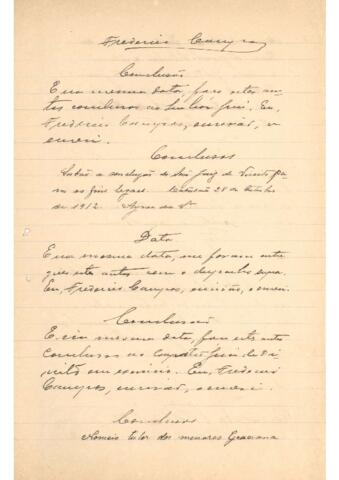 Frederico Campos
Conclusão
E na mesma data, faço estes au-
tos conclusos ao Senhor Juiz. Eu,
Frederico Campos, escrivão, o
escrevi.
Conclusos
Subão a conclusão do Snr Juiz de Direito pa-
ra os fins legaes. 28 de Outubro
de 1912.
Data
E na mesma data, me foram entre
gues estes autos com o despacho supra.
Eu, Frederico Campos, escrivão, o escrevi.
Conclusão
E na mesma data, faço estes autos
conclusos ao Juiz de Di
reito em Eu, Frederico
Campos, escrivão, o escrevi.
Conclusos
Nomeio tutor dos menores Graciana